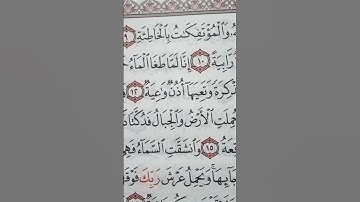 وَالْمُؤْتَفِكَٰتُ بِالْخَاطِئَةِ ٩
رَّابِيَةً ١٠ إِنَّا لَمَّا طَغَا الْمَاءُ
ذْكِرَةً وَتَعِيَهَا أُذُنٌ وَٰعِيَةٌ ١٢
حُمِلَتِ الْأَرْضُ وَالْجِبَالُ فَدُكَّتَا
قِعَةُ ١٥ وَانشَقَّتِ السَّمَاءُ فَهِيَ
جَائِهَا وَيَحْمِلُ عَرْشَ رَبِّكَ فَوْقَ